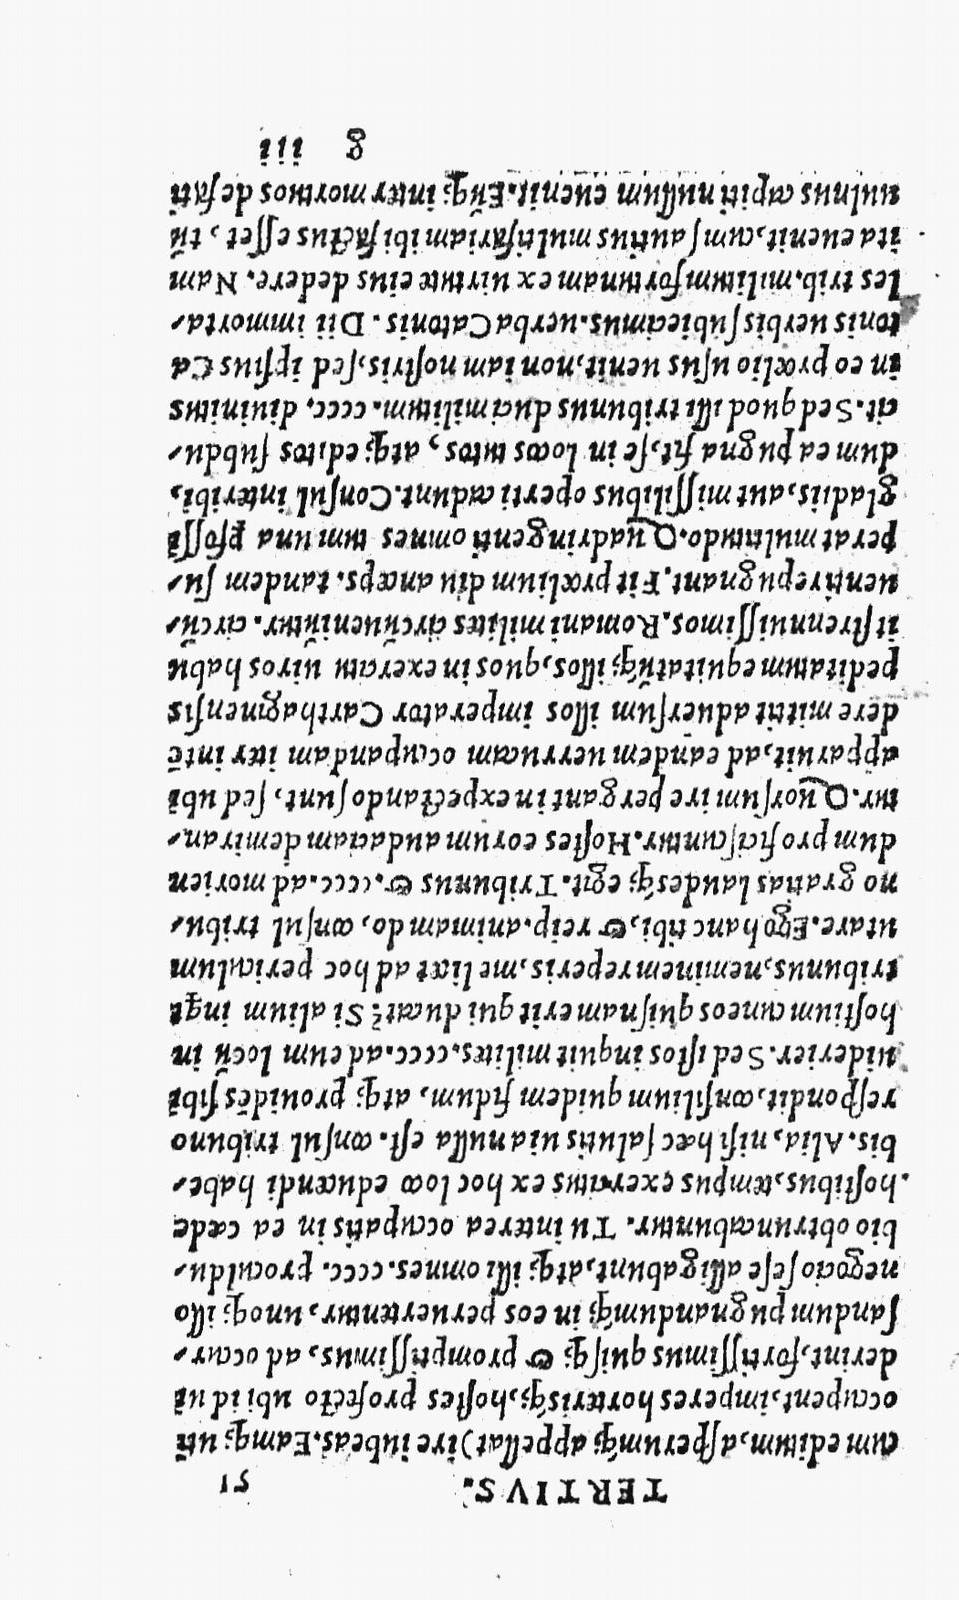 TERTIVS. 51
cum editum, asperumq; appellat) ire iubeas. Eamq; uti
occupent, imperes horterisq́;, hostes profecto ubi id ui
derint, fortissimus quisq; & promptissimus, ad occur-
sandum pugnandumq́; in eos peruertentur, unoq; illo
negocio sese alligabunt, atq; illi omnes. cccc. proculdu-
bio obtruncabuntur. Tu interea occupatis in ea cæde
hostibus, tempus exercitus ex hoc loco educendi habe-
bis. Alia, nisi hæc salutis uia nulla est. consul tribuno
respondit, consilium quidem fidum, atq; prouidēs sibi
uiderier. Sed istos inquit milites. cccc. ad eum locū in
hostium cuneos quisnam erit qui ducat? Si alium inqt
tribunus, neminem reperis, me licet ad hoc periculum
utare. Ego hanc tibi, & reip. animam do, consul tribu-
no gratias laudesq́; egit. Tribunus &. cccc. ad morien
dum proficiscuntur. Hostes eorum audaciam demiran-
tur. Quorsum ire pergant in expectando sunt, sed ubi
apparuit, ad eandem uerrucam occupandam iter intē
dere mittit aduersum illos imperator Carthaginensis
peditatum equitatūq́; illos, quos in exercitu uiros habu
it strennuissimos. Romani milites circūueniūtur. circū-
uenti repugnant. Fit prælium diu anceps. tandem su-
perat multitudo. Quadringenti omnes tum una pfossi
gladiis, aut missilibus operti cadunt. Consul interibi,
dum ea pugna fit, se in locos tutos, atq; editos subdu-
cit. Sed quod illi tribunus duci militum. cccc. diuinitus
in eo prælio usus uenit, non iam nostris, sed ipsius Ca
tonis uerbis subiecimus. uerba Catonis. Dii immorta-
les trib. militum fortunam ex uirtute eius dedere. Nam
ita euenit, cum saucius multifariam ibi factus esset, tū
uulnus capiti nullum euenit. Eūq; inter mortuos defati
g iii